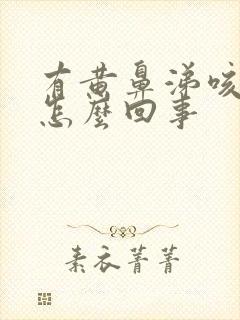 有黄鼻涕咳
怎麼回事
素衣菁菁